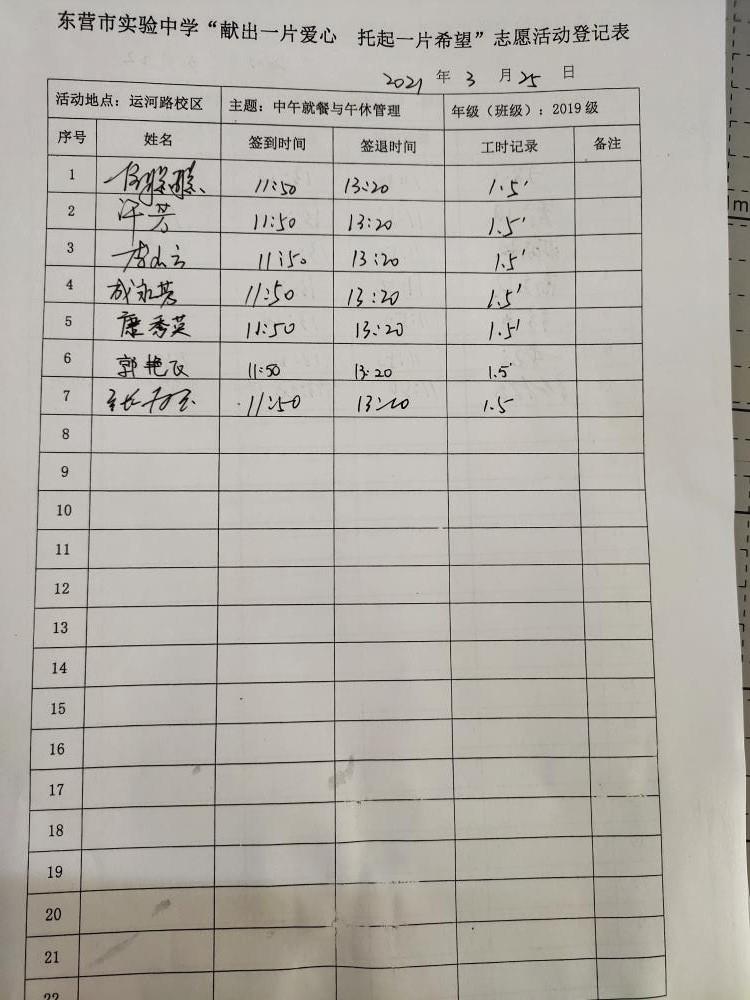 东营市实验中学“献出一片爱心 托起一片希望”志愿活动登记表
2021 年 3 月 25 日
活动地点：运河路校区 主题：中午就餐与午休管理 年级（班级）：2019级
序号 姓名 签到时间 签退时间 工时记录 备注
1 11:50 13:20 1.5'
2 芳 11:50 13:20 1.5'
3 11:50 13:20 1.5'
4 成永芳 11:50 13:20 1.5'
5 康秀英 11:50 13:20 1.5'
6 郭艳 11:50 13:20 1.5'
7 11:50 13:20 1.5
8
9
10
11
12
13
14
15
16
17
18
19
20
21
22